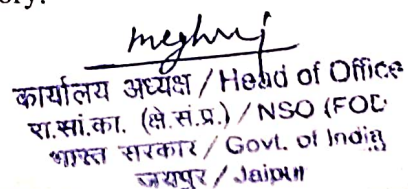 ory.
meghraj
कार्यालय अध्यक्ष / Head of Office
रा.सां.का. (क्षे.सं.प्र.) / NSO (FOD
भारत सरकार / Govt. of India
जयपुर / Jaipur